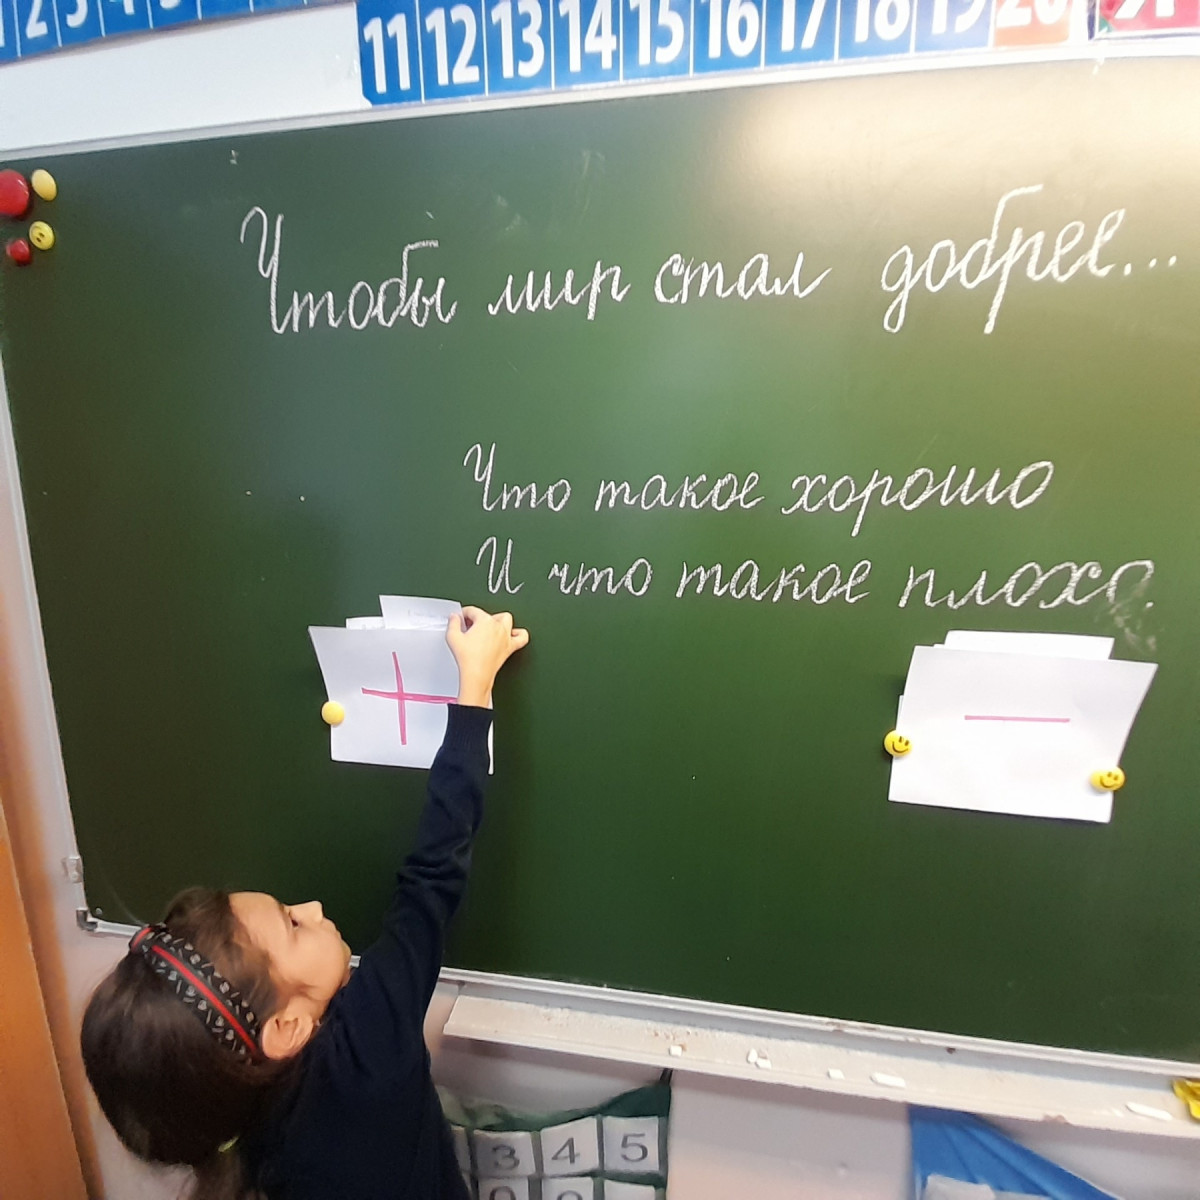 11 12 13 14 15 16 17 18 19 20
Чтобы мир стал добрее...
Что такое хорошо
И что такое плохо.
+
−
3 4 5